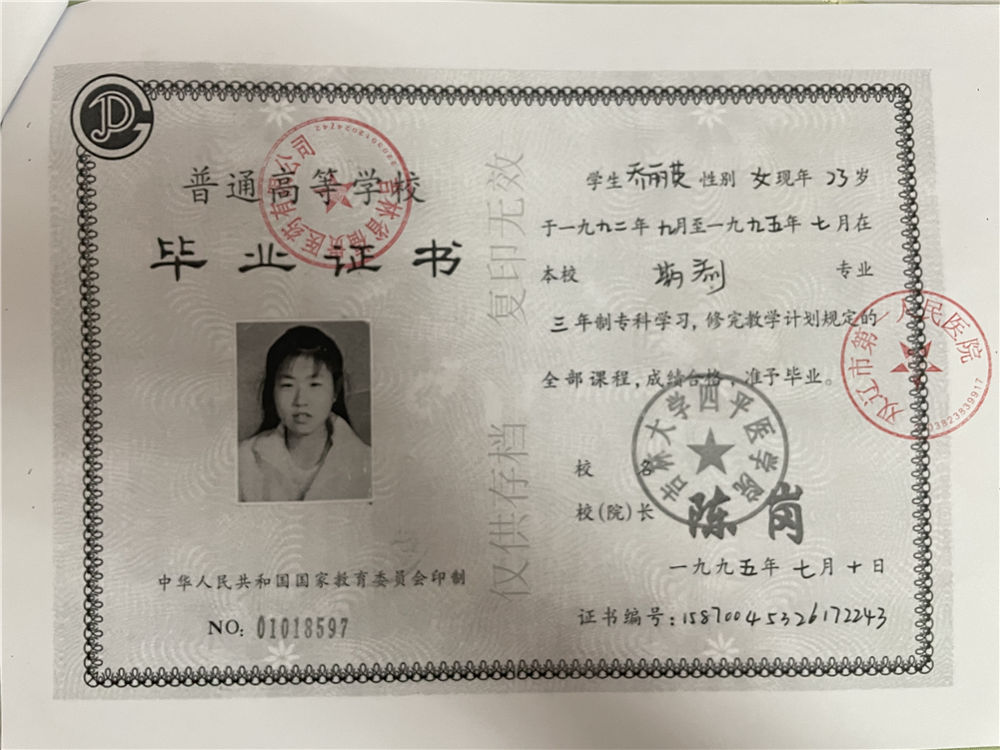 普通高等学校
毕业证书
中华人民共和国国家教育委员会印制
NO: 01018597
仅供存档 复印无效
学生乔丽英 性别 女 现年 23 岁
于一九九二年 九月至一九九五年 七月在
本校 药剂 专业
三年制专科学习，修完教学计划规定的
全部课程，成绩合格，准予毕业。
校 名
校(院)长 陈岗
一九九五年 七月十日
证书编号：15870045326172243
吉林大学四平医学院
双辽市第一人民医院
03823839917
医药有限公司
吉林省